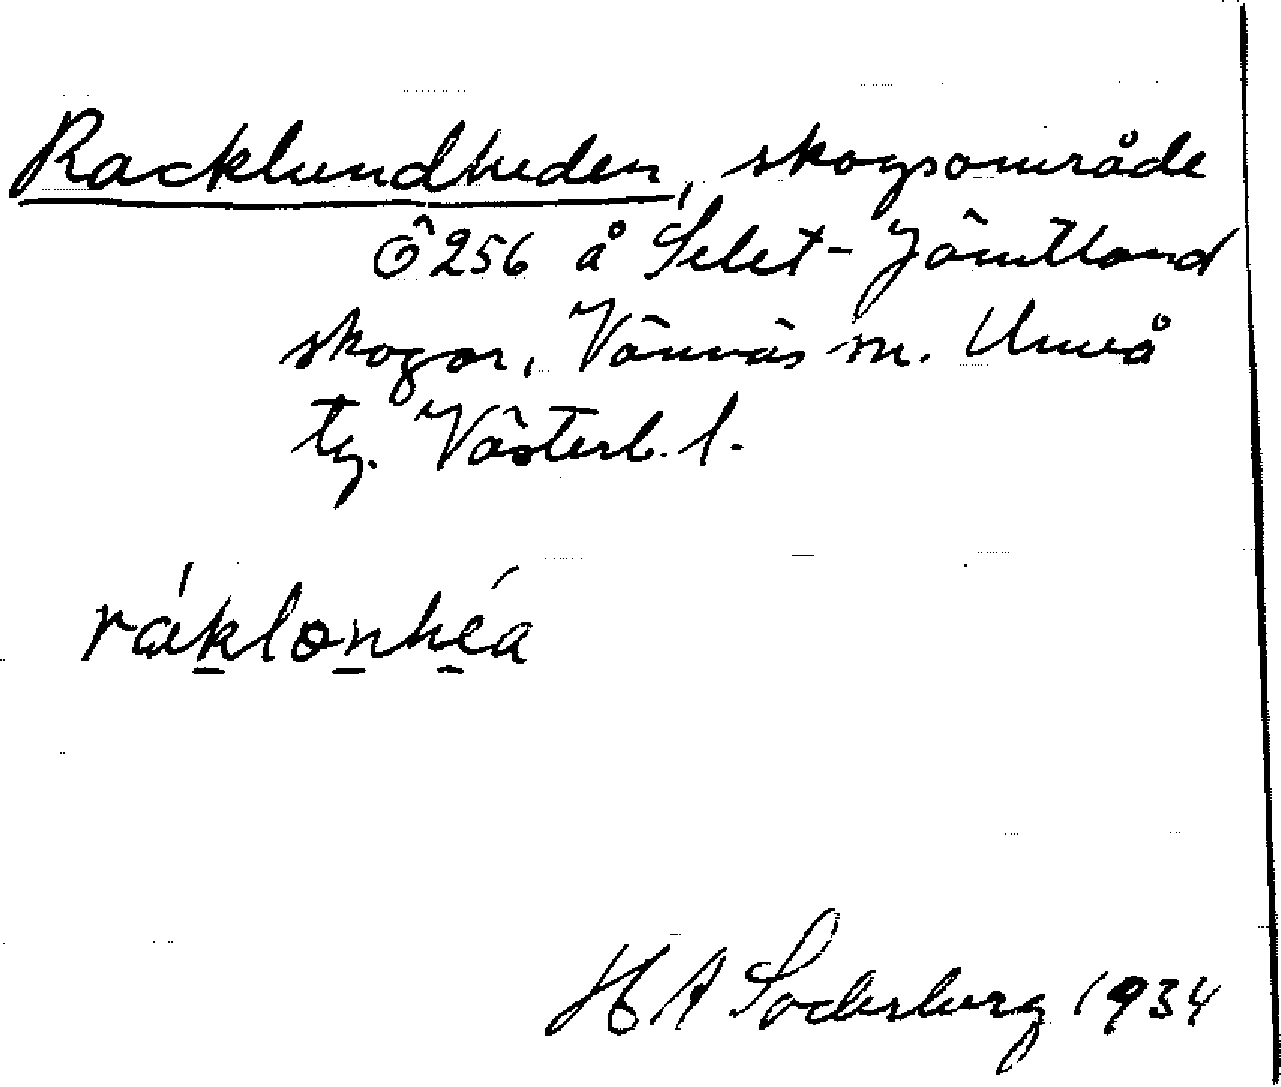 Racklundheden, skogsområde
Ö256 å Selet-Jämtland
skogar, Vännäs sn. Umeå
tg. Västerb. l.
ráklonhéa
H A Söderberg 1934